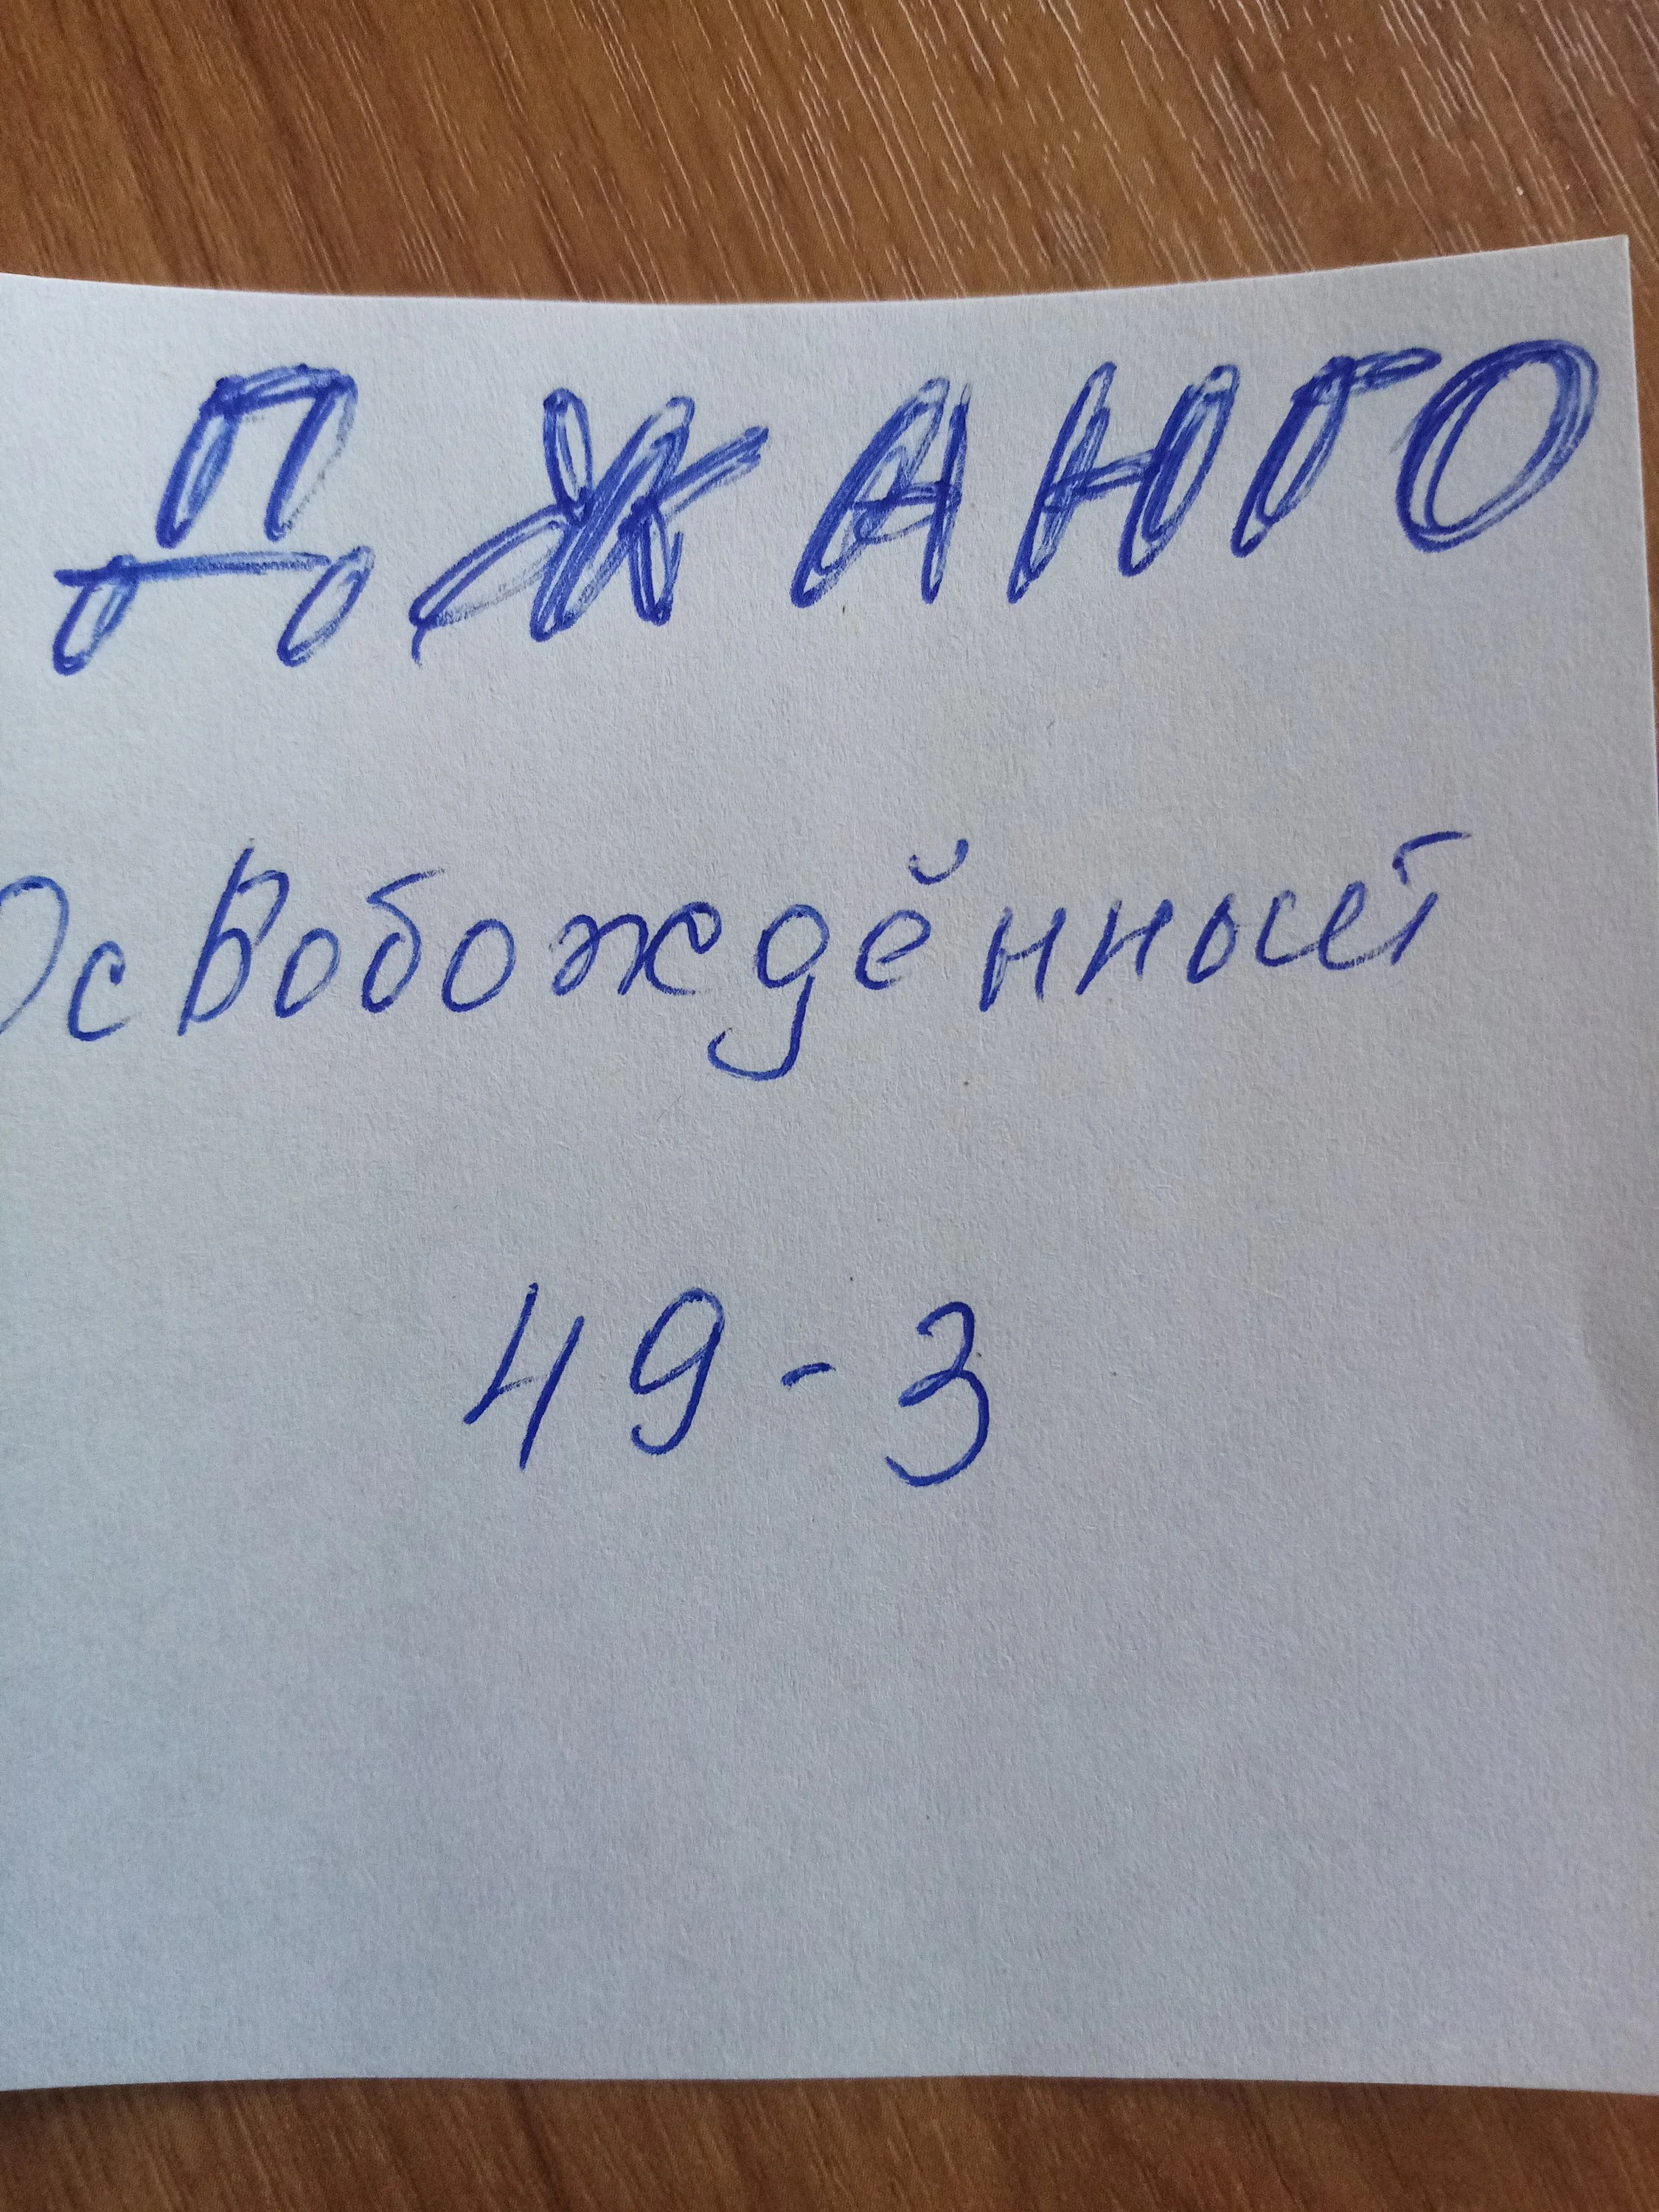 ДЖАНГО
Освобождённый
49-3